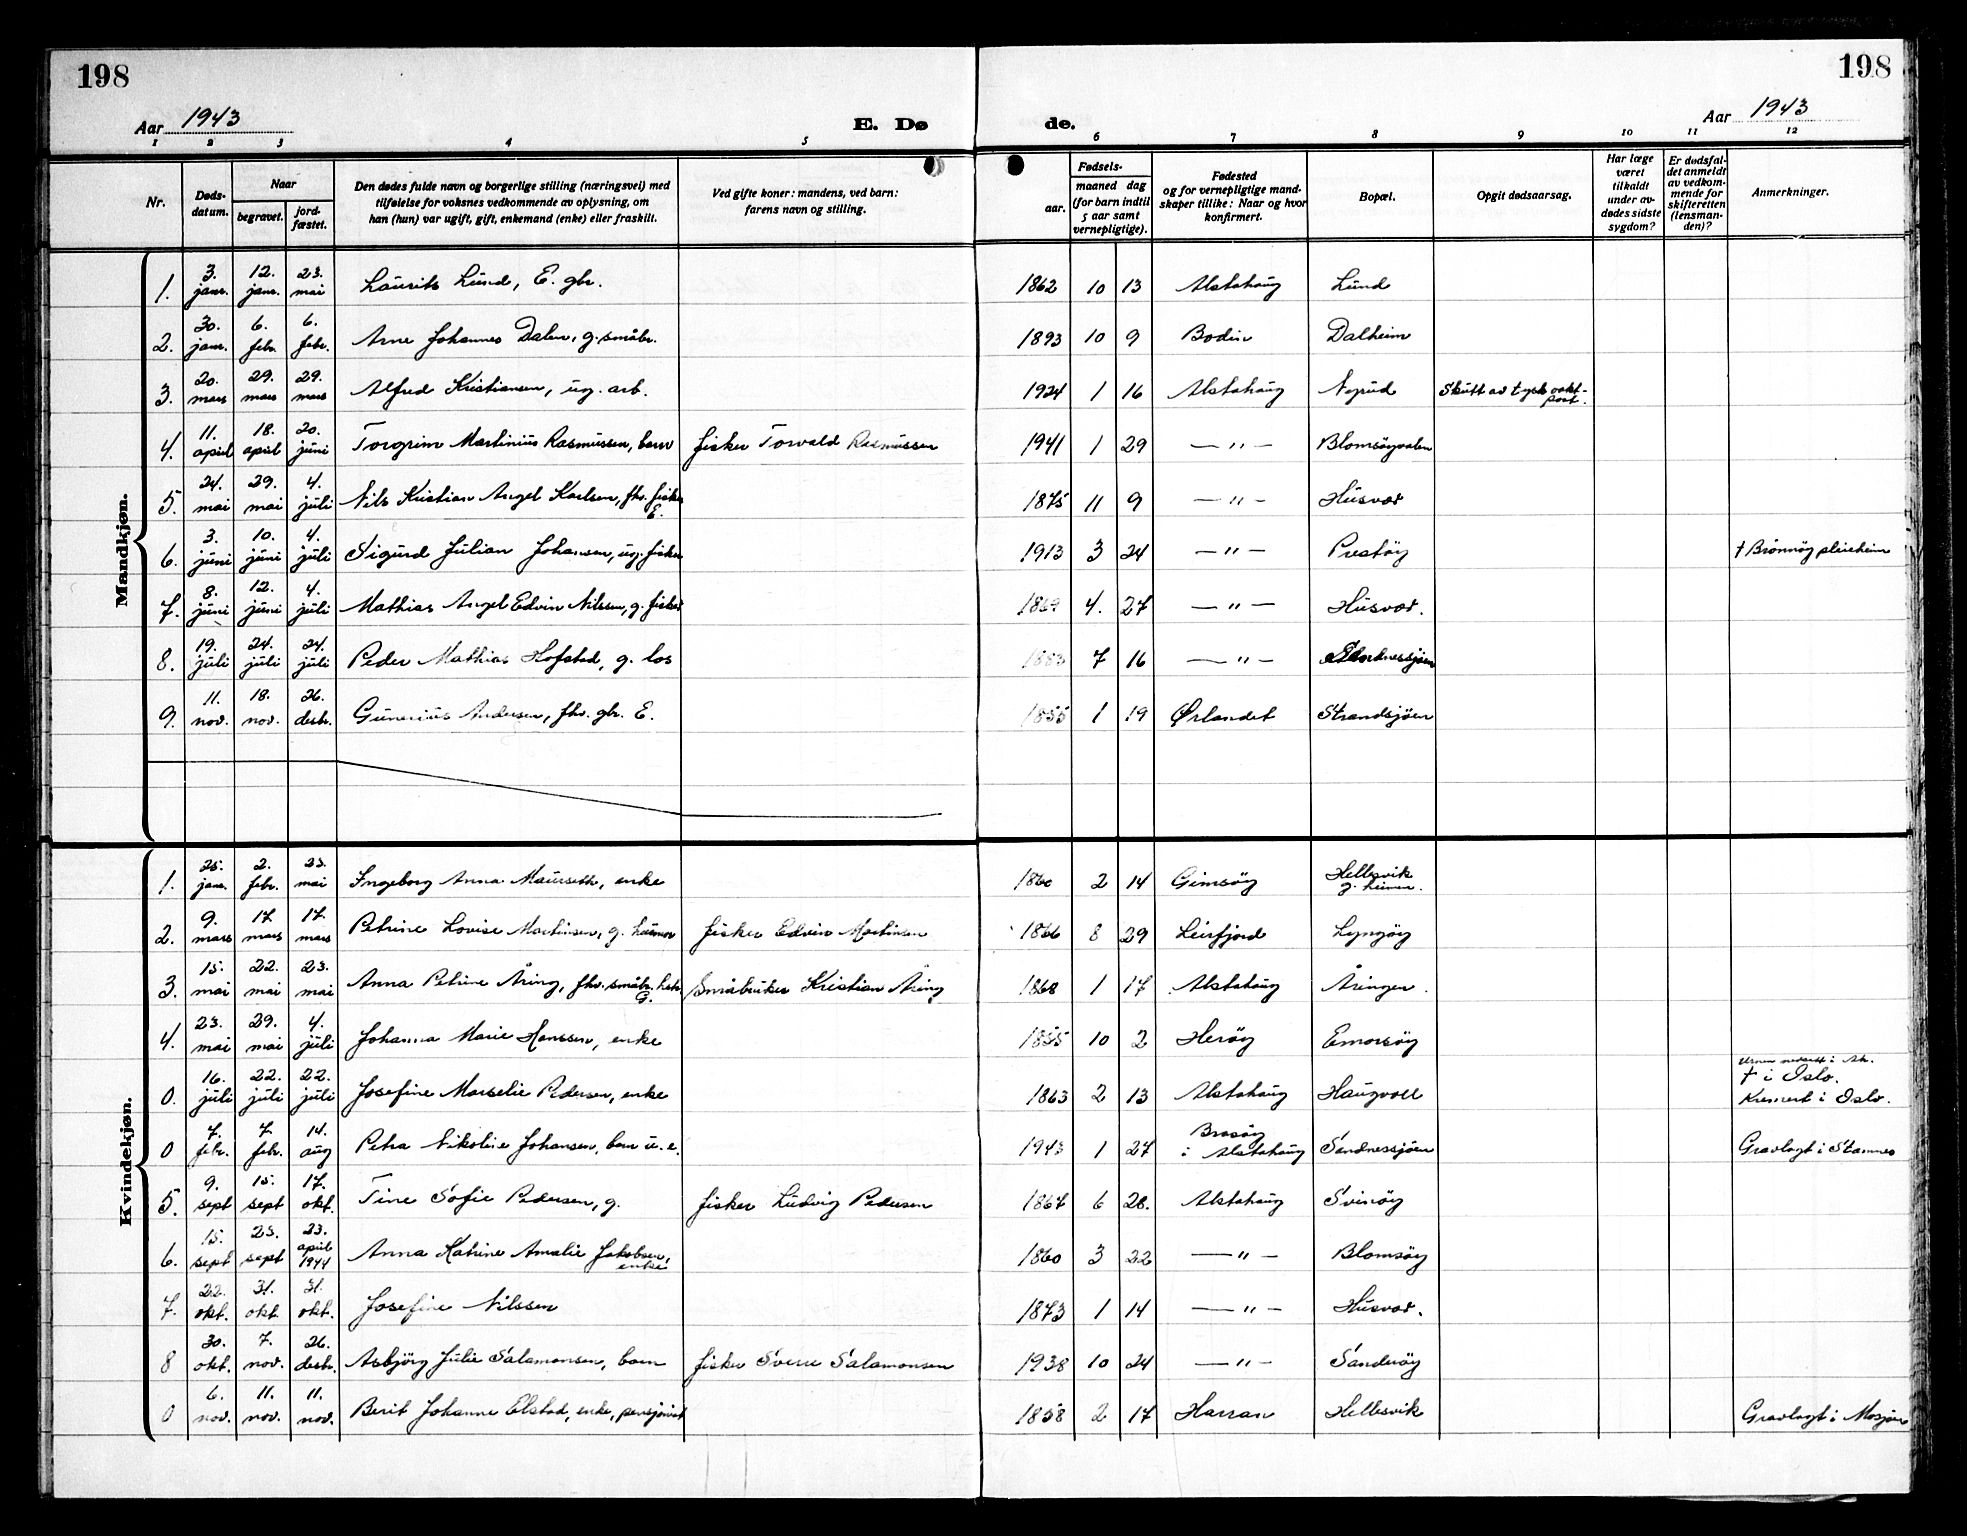 198
198
Aar 1943
E. Dø
de.
Aar 1943
1 2 3 4 5 6 7 8 9 10 11 12
Nr.
Døds-
datum.
Naar
begravet.
jord-
fæstet.
Den dødes fulde navn og borgerlige stilling (næringsvei) med
tilføielse for voksnes vedkommende av oplysning, om
han (hun) var ugift, gift, enkemand (enke) eller fraskilt.
Ved gifte koner: mandens, ved barn:
farens navn og stilling.
Fødsels-
aar.
maaned dag
(for barn indtil
5 aar samt
vernepligtige).
Fødested
og for vernepligtige mand-
skaper tillike: Naar og hvor
konfirmert.
Bopæl.
Opgit dødsaarsag.
Har læge
været
tilkaldt
under av-
dødes sidste
sygdom?
Er dødsfal-
det anmeldt
av vedkom-
mende for
skifteretten
(lensman-
den)?
Anmerkninger.
Mandkjøn.
1. 3. janr. 12. janr. 23. mai Laurits Lund, E. gbr. 1862 10 13 Alstahaug Lund
2. 30. janr. 6. febr. 6. febr. Arne Johannes Dalen, g. småbr. 1893 10 9 Bodin Dalheim
3. 20. mars 29. mars 29. mars Alfred Kristiansen, ug. arb. 1924 1 16 Alstahaug Nyrud Skutt av tysk vakt-
post.
4. 11. april 18. april 20. juni Torgrim Martinius Rasmussen, barn fisker Torvald Rasmussen 1941 1 29 — " — Blomsøyvalen
5. 24. mai 29. mai 4. juli Nils Kristian Angel Karlsen, fhv. fisker
E. 1875 11 9 — " — Husvær
6. 3. juni 10. juni 4. juli Sigurd Julian Johansen, ug. fisker 1913 3 24 — " — Prestøy † Brønnøy pleieheim
7. 8. juni 12. juni 4. juli Mathias Angel Edvin Nilssen, g. fisker 1869 4. 27 — " — Husvær.
8. 19. juli 24. juli 24. juli Peder Mathias Hofstad, g. los 1883 7 16 — " — Sandnessjøen
9. 11. nov. 18. nov. 26. desbr. Gunerius Andersen, fhv. gbr. E. 1855 1 19 Ørlandet Strandsjøen
Kvindekjøn.
1. 25. janr. 2. febr. 23. mai Ingeborg Anna Maurseth, enke 1860 2 14 Gimsøy Hellesvik
g. heimen.
2. 9. mars 17 mars 17. mars Petrine Lovise Martinsen, g. husmor fisker Edvin Martinsen 1866 8 29 Leirfjord Lyngøy
3. 15. mai 22. mai 23. mai Anna Petrine Åring, fhv. småbr.
G. Småbruker Kristian Åring 1868 1 17 Alstahaug Åringen.
4. 23. mai 29. mai 4. juli Johanna Marie Hanssen, enke 1855 10 2 Herøy Emorsøy
0. 16. juli 22. juli 22. juli Josefine Marselie Pedersen, enke 1863 2 13 Alstahaug Haugvoll Urnen nedsatt i Ah.
† i Oslo.
Kremert i Oslo.
0 7. febr. 7. febr. 14. aug Petra Nikoline Johansen, barn u. e. 1943 1 27 Brasøy
i Alstahaug Sandnessjøen Gravlagt i Stamnes
5. 9. sept 15. sept 17. okt. Tine Sofie Pedersen, g. fisker Ludvig Pedersen 1867 6 28. Alstahaug Svinøy
6. 15. sept 23. sept 23. april 1944 Anna Katrine Amalie Jakobsen,
enke 1860 3 22 — " — Blomsøy
7. 22. okt. 31. okt. 31. okt. Josefine Nilssen 1873 1 14 — " — Husvær.
8 30. okt. 7. nov. 26. desbr. Asbjørg Julie Salamonsen, barn fisker Sverre Salamonsen 1938 10 24 — " — Sandøy
0 6. nov. 11. nov. 11. nov. Berit Johanne Elstad, enke, pensjonist 1858 2 17 Harran Hellesvik Gravlagt i Mosjøen